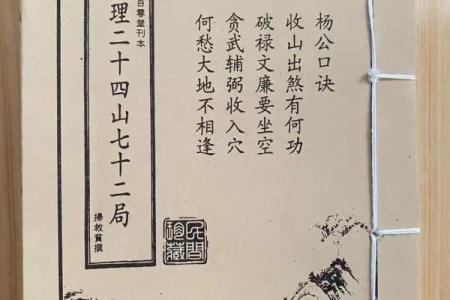 杨公口诀
收山出煞有何功
破禄文廉要坐空
贪武辅弼收入穴
何愁大地不相逢
理二十四山七十二局
楊救貧撰
民間珍藏